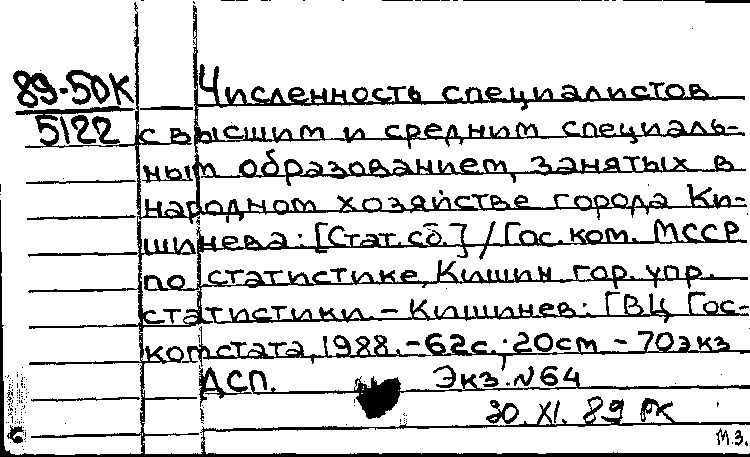 89-50К
5122
Численность специалистов
с высшим и средним специаль-
ным образованием, занятых в
народном хозяйстве города Ки-
шинева: [Стат. сб.] / Гос. ком. МССР
по статистике, Кишин. гор. упр.
статистики. - Кишинев: ГВЦ Гос-
комстата, 1988. - 62с.; 20см - 70экз
ДСП. Экз. №64
30. XI. 89 РК
М.З.